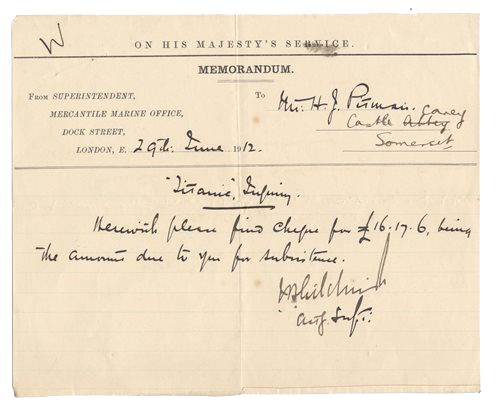 W
ON HIS MAJESTY'S SERVICE.
MEMORANDUM.
FROM SUPERINTENDENT,
MERCANTILE MARINE OFFICE,
DOCK STREET,
LONDON, E. 29th June 1912.
To Mr. H. J. Pitman.
Castle Abbey Carey
Somerset
"Titanic" Inquiry.
Herewith please find cheque for £16.17.6, being
the amount due to you for subsistence.